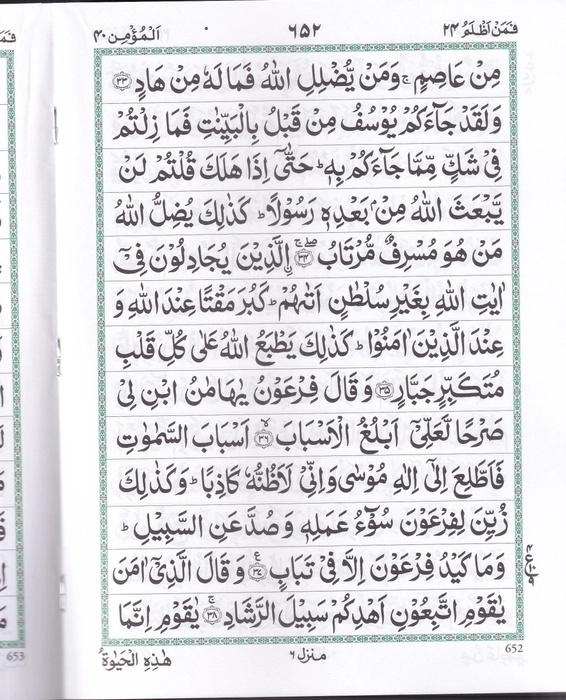 فَمَنْ اَظْلَمُ ۲۴
۶۵۲
اَلْمُؤْمِن ۴۰
مِنْ عَاصِمٍ ۚ وَمَنْ يُّضْلِلِ اللّٰهُ فَمَا لَهٗ مِنْ هَادٍ ﴿۳۳﴾
وَلَقَدْ جَآءَكُمْ يُوْسُفُ مِنْ قَبْلُ بِالْبَيِّنٰتِ فَمَا زِلْتُمْ
فِىْ شَكٍّ مِّمَّا جَآءَكُمْ بِهٖ ؕ حَتّٰٓى اِذَا هَلَكَ قُلْتُمْ لَنْ
يَّبْعَثَ اللّٰهُ مِنْۢ بَعْدِهٖ رَسُوْلًا ؕ كَذٰلِكَ يُضِلُّ اللّٰهُ
مَنْ هُوَ مُسْرِفٌ مُّرْتَابٌ ﴿۳۴﴾ ۚۖ اِۨلَّذِيْنَ يُجَادِلُوْنَ فِىْٓ
اٰيٰتِ اللّٰهِ بِغَيْرِ سُلْطٰنٍ اَتٰىهُمْ ؕ كَبُرَ مَقْتًا عِنْدَ اللّٰهِ وَ
عِنْدَ الَّذِيْنَ اٰمَنُوْا ؕ كَذٰلِكَ يَطْبَعُ اللّٰهُ عَلٰى كُلِّ قَلْبِ
مُتَكَبِّرٍ جَبَّارٍ ﴿۳۵﴾ وَ قَالَ فِرْعَوْنُ يٰهَامٰنُ ابْنِ لِىْ
صَرْحًا لَّعَلِّىْٓ اَبْلُغُ الْاَسْبَابَ ﴿۳۶﴾ ۙ اَسْبَابَ السَّمٰوٰتِ
فَاَطَّلِعَ اِلٰٓى اِلٰهِ مُوْسٰى وَاِنِّىْ لَاَظُنُّهٗ كَاذِبًا ؕ وَكَذٰلِكَ
زُيِّنَ لِفِرْعَوْنَ سُوْٓءُ عَمَلِهٖ وَصُدَّ عَنِ السَّبِيْلِ ؕ
وَمَا كَيْدُ فِرْعَوْنَ اِلَّا فِىْ تَبَابٍ ﴿۳۷﴾ ع وَ قَالَ الَّذِىْٓ اٰمَنَ
يٰقَوْمِ اتَّبِعُوْنِ اَهْدِكُمْ سَبِيْلَ الرَّشَادِ ﴿۳۸﴾ ۚ يٰقَوْمِ اِنَّمَا
652
منزل ۶
هٰذِهِ الْحَيٰوةُ
653